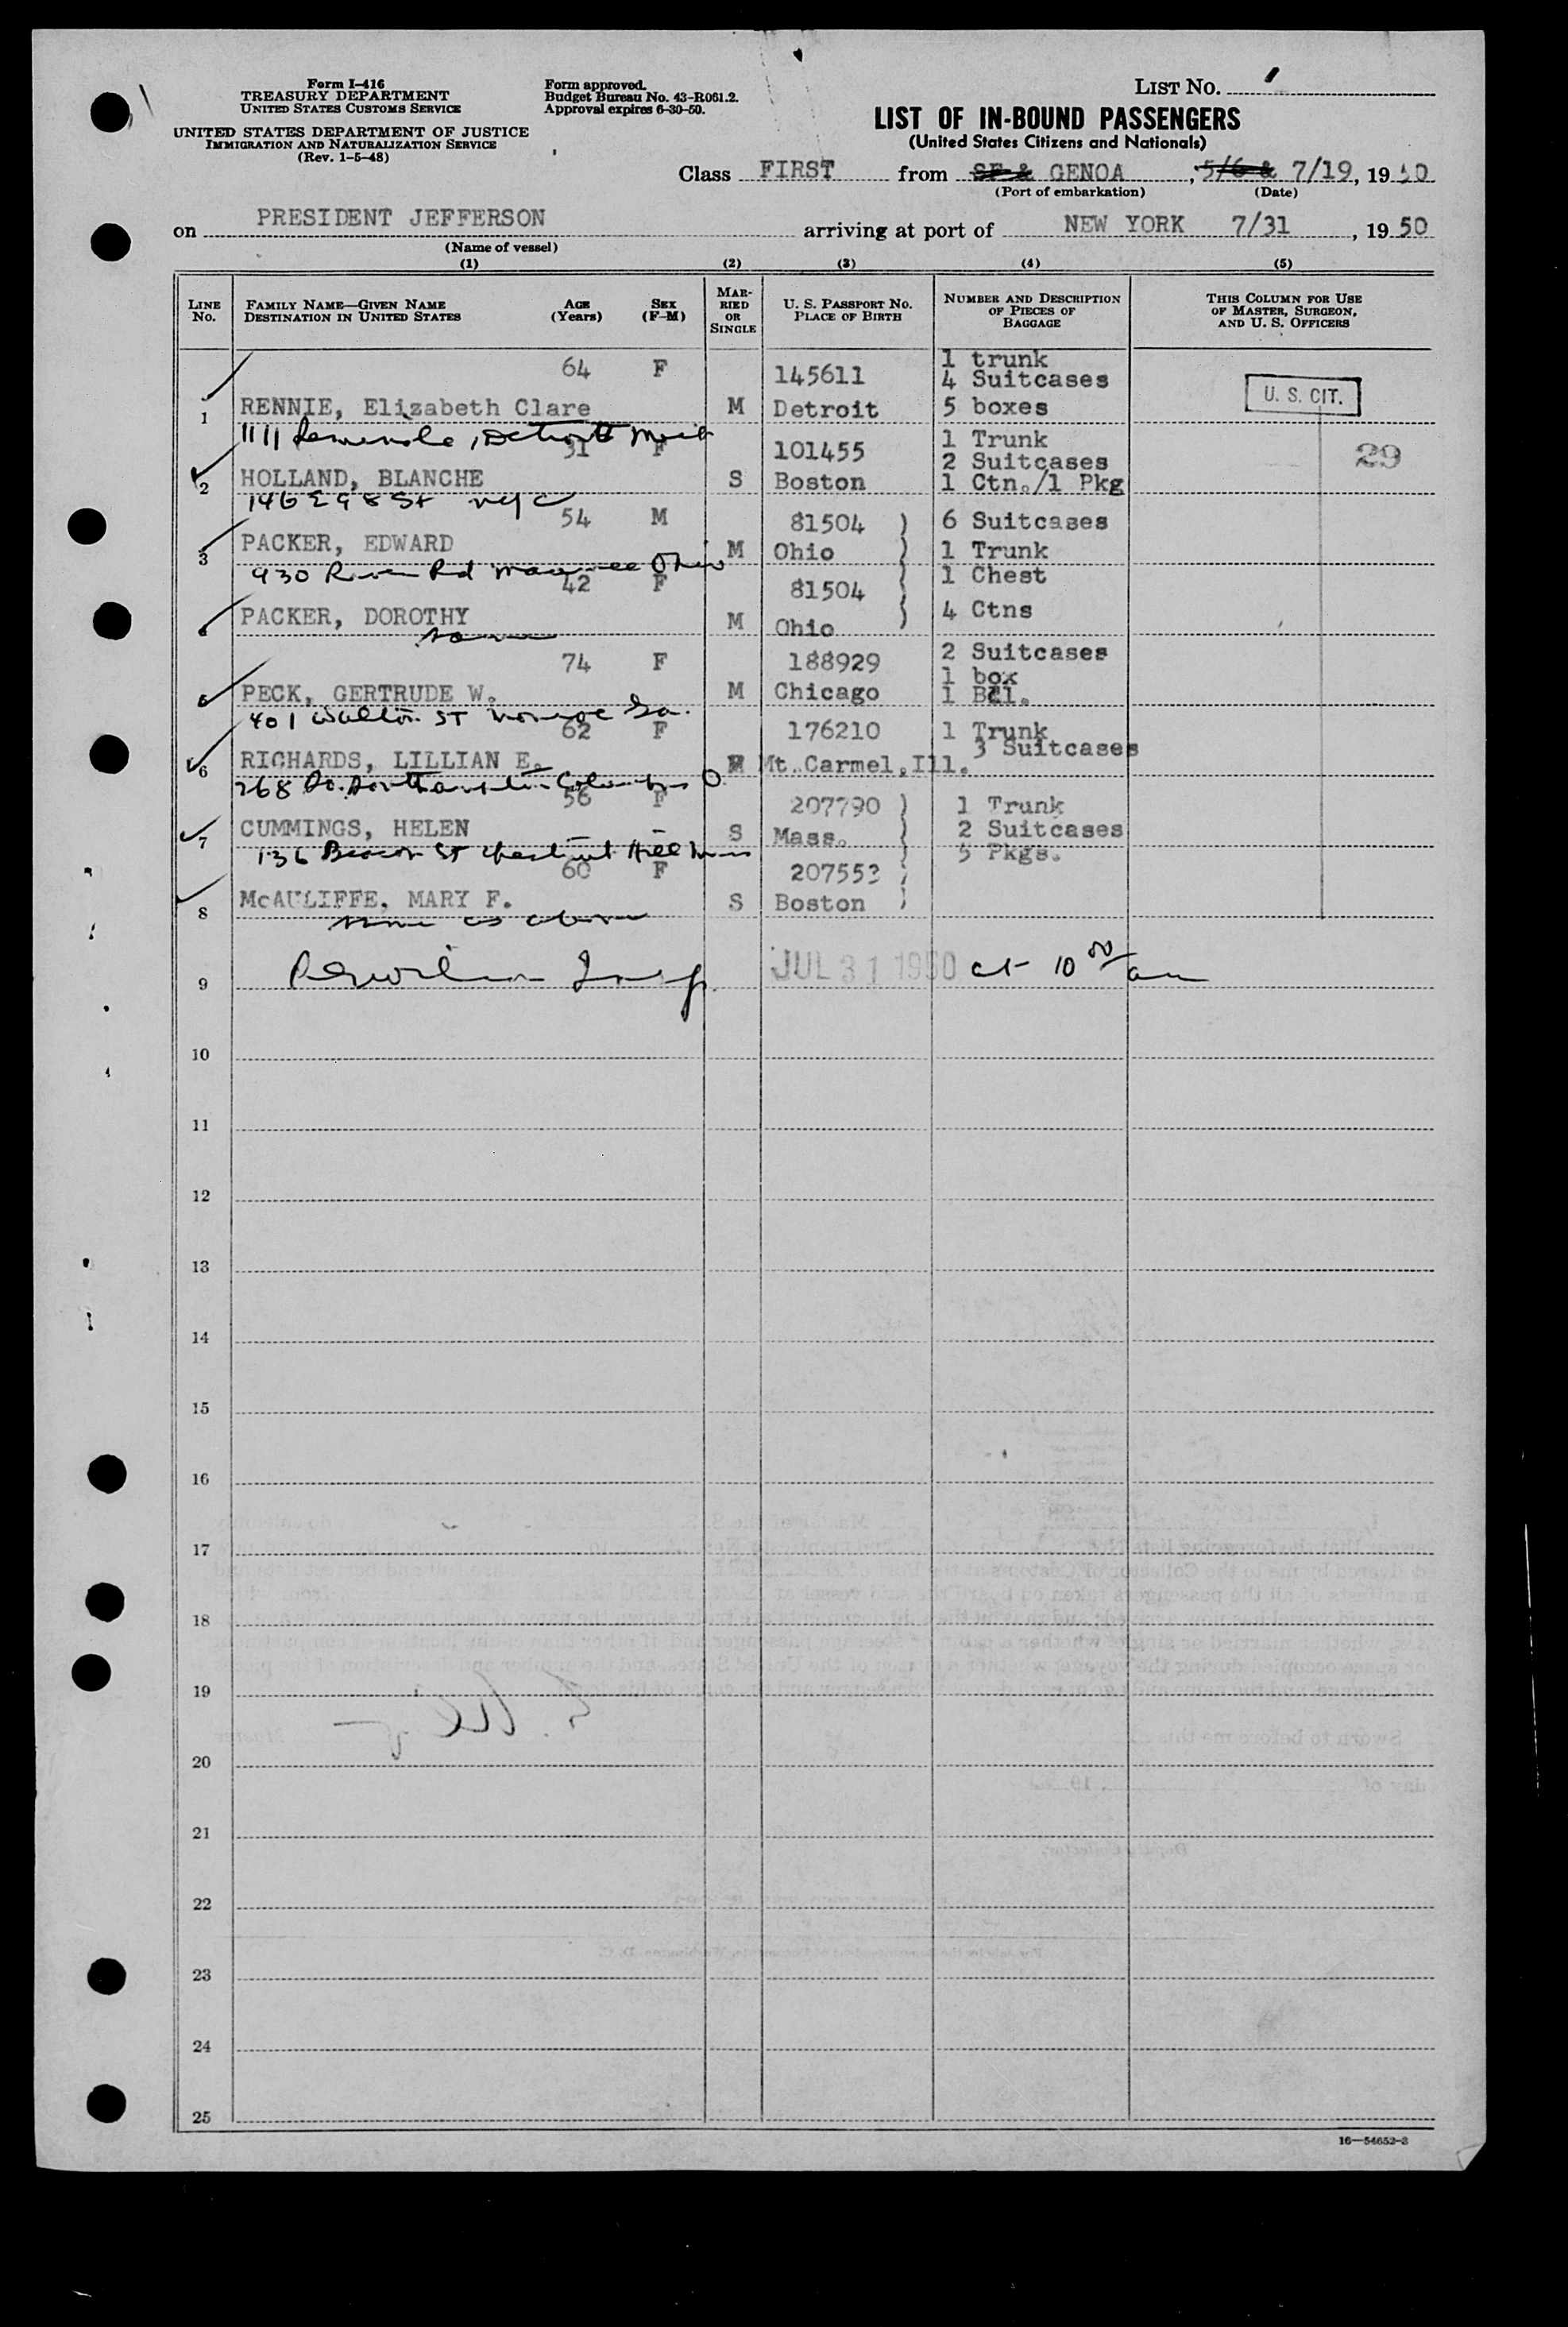 Form I-416
TREASURY DEPARTMENT
UNITED STATES CUSTOMS SERVICE
UNITED STATES DEPARTMENT OF JUSTICE
IMMIGRATION AND NATURALIZATION SERVICE
(Rev. 1-5-48)
Form approved.
Budget Bureau No. 43-R061.2.
Approval expires 6-30-50.
LIST NO. 1
LIST OF IN-BOUND PASSENGERS
(United States Citizens and Nationals)
Class FIRST from SF & GENOA, 5/6 & 7/19, 1950
(Port of embarkation) (Date)
on PRESIDENT JEFFERSON arriving at port of NEW YORK 7/31, 1950
(Name of vessel)
(1) (2) (3) (4) (5)
LINE NO.
FAMILY NAME—GIVEN NAME
DESTINATION IN UNITED STATES
AGE (Years)
SEX (F-M)
MARRIED OR SINGLE
U. S. PASSPORT NO.
PLACE OF BIRTH
NUMBER AND DESCRIPTION OF PIECES OF BAGGAGE
THIS COLUMN FOR USE OF MASTER, SURGEON, AND U. S. OFFICERS
64 F 145611 1 trunk
4 Suitcases
1 RENNIE, Elizabeth Clare M Detroit 5 boxes
U. S. CIT.
1111 Seminole, Detroit Mich
31 F 101455 1 Trunk
2 Suitcases
29
2 HOLLAND, BLANCHE S Boston 1 Ctn./1 Pkg
146 E 98 St NYC
54 M 81504 6 Suitcases
3 PACKER, EDWARD M Ohio 1 Trunk
930 River Rd Maumee Ohio
42 F 81504 1 Chest
4 PACKER, DOROTHY M Ohio 4 Ctns
same
74 F 188929 2 Suitcases
1 box
5 PECK, GERTRUDE W. M Chicago 1 Bdl.
401 Walton ST Monroe Ga.
62 F 176210 1 Trunk
3 Suitcases
6 RICHARDS, LILLIAN E. Mt. Carmel, Ill.
268 Columbus O
56 F 207790 1 Trunk
7 CUMMINGS, HELEN S Mass. 2 Suitcases
136 Beacon ST Chestnut Hill Mass
5 Pkgs.
60 F 207553
8 McAULIFFE, MARY F. S Boston
same as above
9 Insp. JUL 31 1950 at 10 00/am
10
11
12
13
14
15
16
17
18
19
20
21
22
23
24
25
16—54652-3